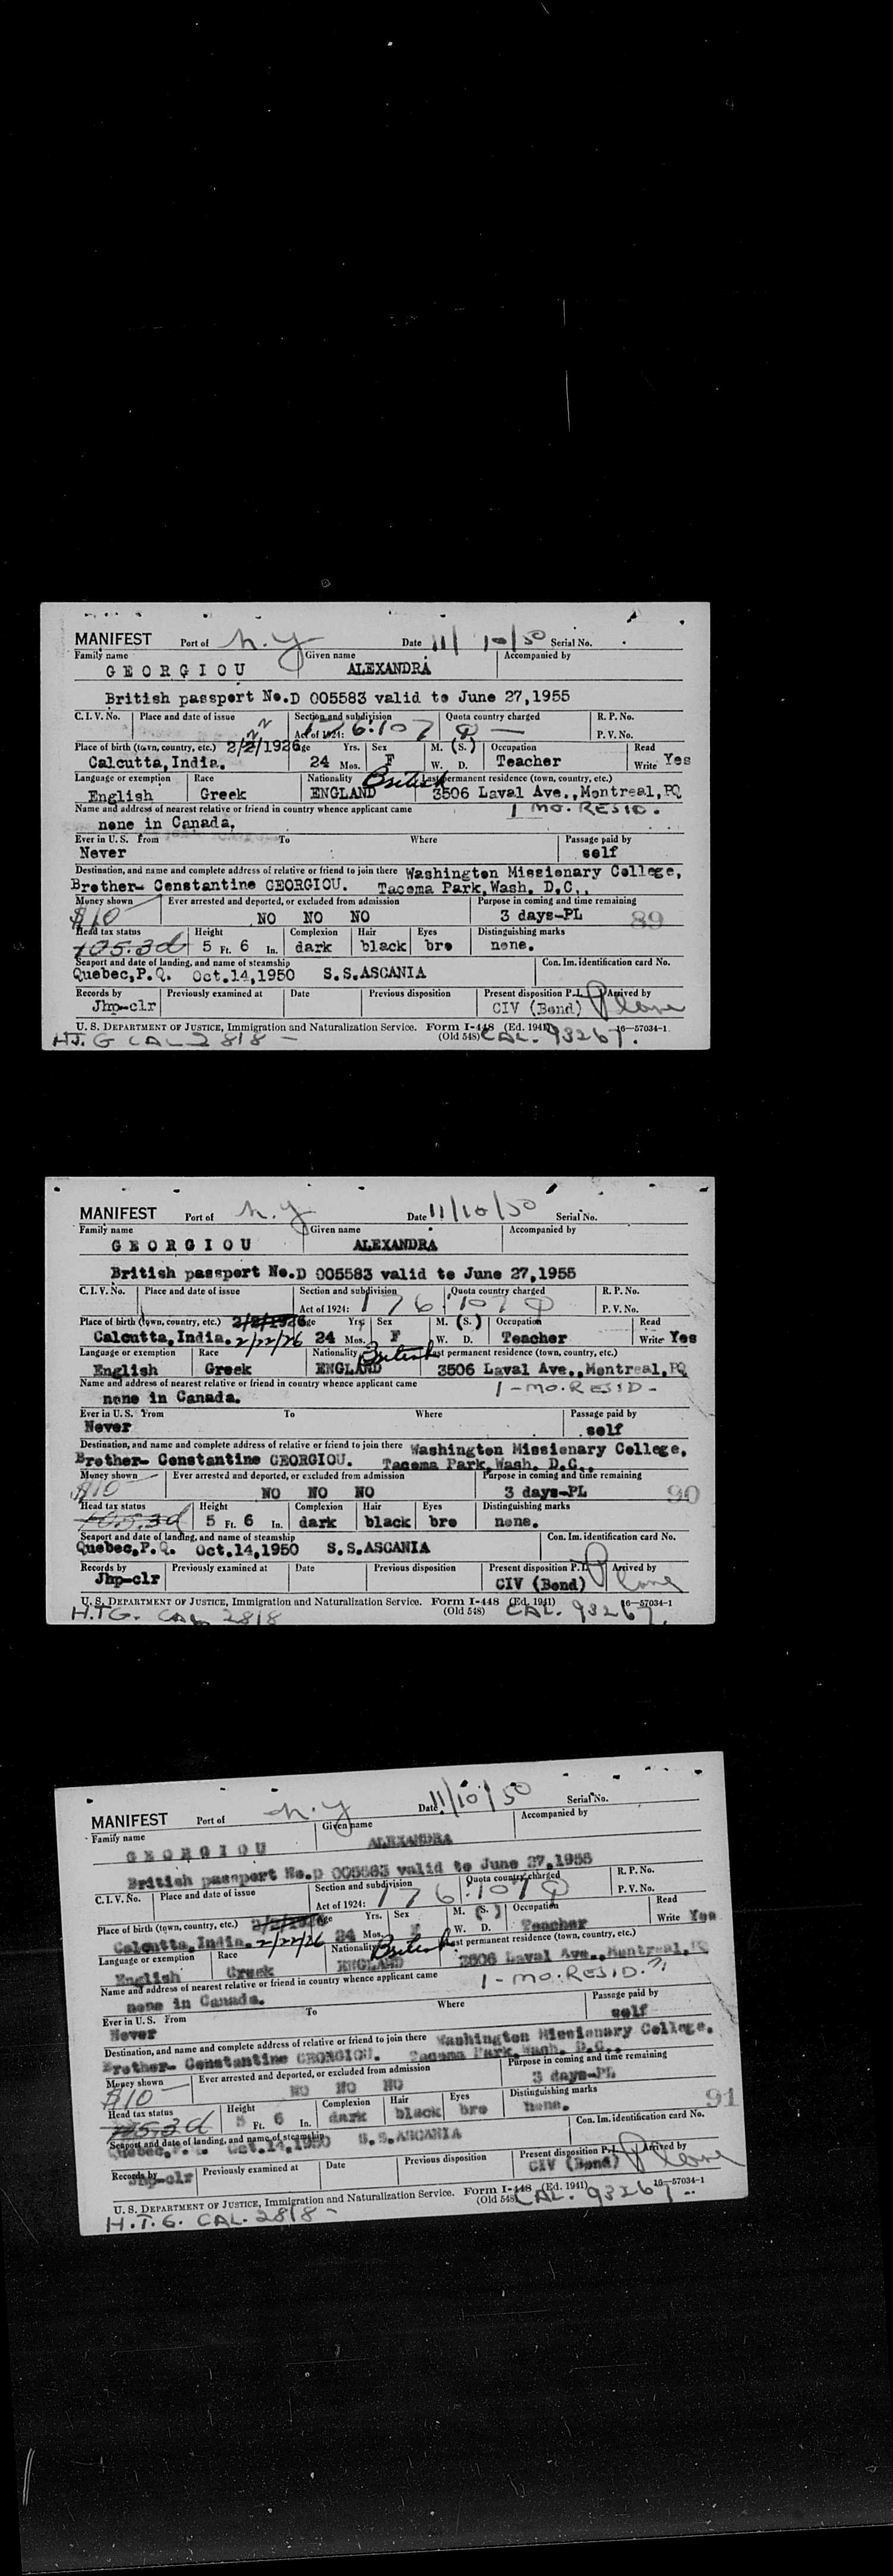 MANIFEST Port of N.Y Date 11/10/50 Serial No.
Family name Given name Accompanied by
GEORGIOU ALEXANDRA
British passport No.D 005583 valid to June 27,1955
C. I. V. No. Place and date of issue Section and subdivision Quota country charged R. P. No.
Act of 1924: 176.107 P. V. No.
Place of birth (town, country, etc.) 2/2/1926 Age Yrs. Sex M. (S.) Occupation Read
Calcutta,India. 24 Mos. F W. D. Teacher Write Yes
Language or exemption Race Nationality British Last permanent residence (town, country, etc.)
English Greek ENGLAND 3506 Laval Ave.,Montreal,PQ
Name and address of nearest relative or friend in country whence applicant came 1 MO. RESID.
none in Canada.
Ever in U. S. From To Where Passage paid by
Never self
Destination, and name and complete address of relative or friend to join there Washington Missionary College,
Brother- Constantine GEORGIOU. Tacoma Park,Wash. D.C.,
Money shown Ever arrested and deported, or excluded from admission Purpose in coming and time remaining
$10 NO NO NO 3 days-PL 89
Head tax status Height Complexion Hair Eyes Distinguishing marks
5 Ft. 6 In. dark black bro none.
Seaport and date of landing, and name of steamship Con. Im. identification card No.
Quebec,P.Q. Oct.14,1950 S.S.ASCANIA
Records by Previously examined at Date Previous disposition Present disposition P.L. Arrived by
Jhp-clr CIV (Bond) Plane
U. S. DEPARTMENT OF JUSTICE, Immigration and Naturalization Service. Form I-448 (Ed. 1941) 16—57034-1
(Old 548)
H.T.G CAL 2818 - CAL. 93267.
MANIFEST Port of N.Y Date 11/10/50 Serial No.
Family name Given name Accompanied by
GEORGIOU ALEXANDRA
British passport No.D 005583 valid to June 27,1955
C. I. V. No. Place and date of issue Section and subdivision Quota country charged R. P. No.
Act of 1924: 176.107 P. V. No.
Place of birth (town, country, etc.) 2/2/1926 Age Yrs. Sex M. (S.) Occupation Read
Calcutta,India. 2/22/26 24 Mos. F W. D. Teacher Write Yes
Language or exemption Race Nationality British Last permanent residence (town, country, etc.)
English Greek ENGLAND 3506 Laval Ave.,Montreal,PQ
Name and address of nearest relative or friend in country whence applicant came 1-MO.RESID-
none in Canada.
Ever in U. S. From To Where Passage paid by
Never self
Destination, and name and complete address of relative or friend to join there Washington Missionary College,
Brother- Constantine GEORGIOU. Tacoma Park,Wash. D.C.,
Money shown Ever arrested and deported, or excluded from admission Purpose in coming and time remaining
$10 NO NO NO 3 days-PL 90
Head tax status Height Complexion Hair Eyes Distinguishing marks
5 Ft. 6 In. dark black bro none.
Seaport and date of landing, and name of steamship Con. Im. identification card No.
Quebec,P.Q. Oct.14,1950 S.S.ASCANIA
Records by Previously examined at Date Previous disposition Present disposition P.L. Arrived by
Jhp-clr CIV (Bond) Plane
U. S. DEPARTMENT OF JUSTICE, Immigration and Naturalization Service. Form I-448 (Ed. 1941) 16—57034-1
(Old 548)
H.T.G. CAL 2818 CAL. 93267.
MANIFEST Port of N.Y Date 11/10/50 Serial No.
Family name Given name Accompanied by
GEORGIOU ALEXANDRA
British passport No.D 005583 valid to June 27,1955
C. I. V. No. Place and date of issue Section and subdivision Quota country charged R. P. No.
Act of 1924: 176.107 P. V. No.
Place of birth (town, country, etc.) 2/2/1926 Age Yrs. Sex M. (S.) Occupation Read
Calcutta,India. 2/22/26 24 Mos. F W. D. Teacher Write Yes
Language or exemption Race Nationality British Last permanent residence (town, country, etc.)
English Greek ENGLAND 3506 Laval Ave.,Montreal,PQ
Name and address of nearest relative or friend in country whence applicant came 1-MO.RESID.
none in Canada.
Ever in U. S. From To Where Passage paid by
Never self
Destination, and name and complete address of relative or friend to join there Washington Missionary College,
Brother- Constantine GEORGIOU. Tacoma Park,Wash. D.C.,
Money shown Ever arrested and deported, or excluded from admission Purpose in coming and time remaining
$10 NO NO NO 3 days-PL
Head tax status Height Complexion Hair Eyes Distinguishing marks 91
5 Ft. 6 In. dark black bro none.
Seaport and date of landing, and name of steamship Con. Im. identification card No.
Quebec,P.Q. Oct.14,1950 S.S.ASCANIA
Records by Previously examined at Date Previous disposition Present disposition P.L. Arrived by
Jhp-clr CIV (Bond) Plane
U. S. DEPARTMENT OF JUSTICE, Immigration and Naturalization Service. Form I-448 (Ed. 1941) 16—57034-1
(Old 548)
H.T.G. CAL. 2818- CAL. 93267